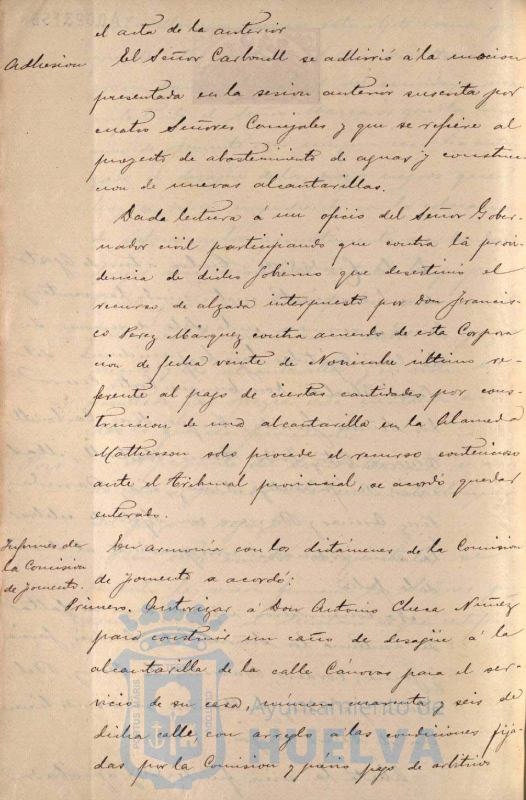 el acta de la anterior
Adhesion
El Señor Carbonell se adhirió á la mocion
presentada en la sesion anterior suscrita por
cuatro Señores Concejales y que se refiere al
proyecto de abastecimiento de aguas y construc-
cion de nuevas alcantarillas.
Dada lectura á un oficio del Señor Gober-
nador civil participando que contra la provi-
dencia de dicho Gobierno que desestimó el
recurso de alzada interpuesto por Don Francis-
co Perez Márquez contra acuerdo de esta Corpora-
cion de fecha veinte de Noviembre último re-
ferente al pago de ciertas cantidades por cons-
truccion de una alcantarilla en la Alameda
Mathesson solo procede el recurso contencioso
ante el Tribunal provincial, se acordó quedar
enterado.
Informes de
la Comision
de Fomento.
En armonía con los dictámenes de la Comision
de Fomento se acordó:
Primero. Autorizar á Don Antonio Checa Núñez
para construir un caño de desagüe á la
alcantarilla de la calle Cánovas para el ser-
vicio de su casa, número cuarenta y seis de
dicha calle, con arreglo á las condiciones fija-
das por la Comision y prévio pago de arbitrios
PORTUS MARIS
CUSTODIA
Ayuntamiento de
HUELVA